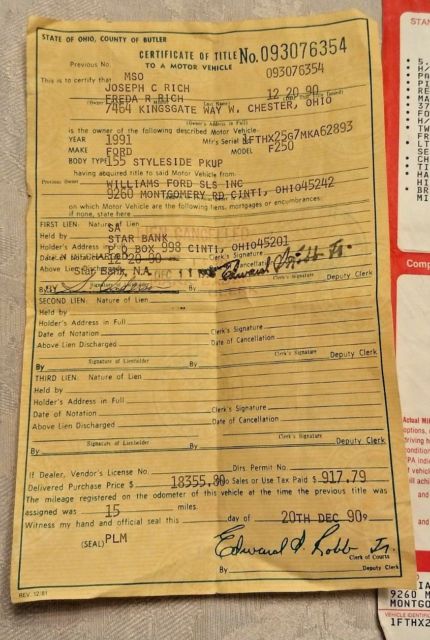 STATE OF OHIO, COUNTY OF BUTLER
CERTIFICATE OF TITLE No. 093076354
Previous No. TO A MOTOR VEHICLE 093076354
MSO
This is to certify that JOSEPH C RICH 12 20 90
FREDA R RICH
7464 KINGSGATE WAY W, CHESTER, OHIO
(Owner's Address in Full)
is the owner of the following described Motor Vehicle- Mfr's Serial 1FTHX25G7MKA62893
YEAR 1991
MAKE FORD MODEL F250
BODY TYPE 155 STYLESIDE PKUP
having acquired title to said Motor Vehicle from-
Previous Owner WILLIAMS FORD SLS INC
9260 MONTGOMERY RD, CINTI, OHIO45242
on which Motor Vehicle are the following liens, mortgages or encumbrances:
if none, state here
FIRST LIEN: Nature of Lien SA
Held by STAR BANK
Holder's Address P O BOX 998 CINTI, OHIO45201
12 20 90
Above Lien BANK, N.A. DEC 11 Edward S. Robb Jr.
By Signature of By Deputy Clerk
SECOND LIEN: Nature of Lien
Held by
Holder's Address in Full Clerk's Signature
Date of Notation Date of Cancellation
Above Lien Discharged
By Signature of Lienholder By Clerk's Signature Deputy Clerk
THIRD LIEN: Nature of Lien
Held by
Holder's Address in Full Clerk's Signature
Date of Notation Date of Cancellation
Above Lien Discharged
By Signature of Lienholder By Clerk's Signature Deputy Clerk
If Dealer, Vendor's License No. Dlrs. Permit No.
Delivered Purchase Price $ 18355.80 Sales or Use Tax Paid $ 917.79
The mileage registered on the odometer of this vehicle at the time the previous title was
assigned was 15 miles.
Witness my hand and official seal this day of 20TH DEC 90
(SEAL) PLM Edward S. Robb Jr.
Clerk of Courts
By Deputy Clerk
REV. 12/81
STAN
Comp
Actual Mil
9260 M
MONTGO
VEHICLE IDENTIFIC
1FTHX2